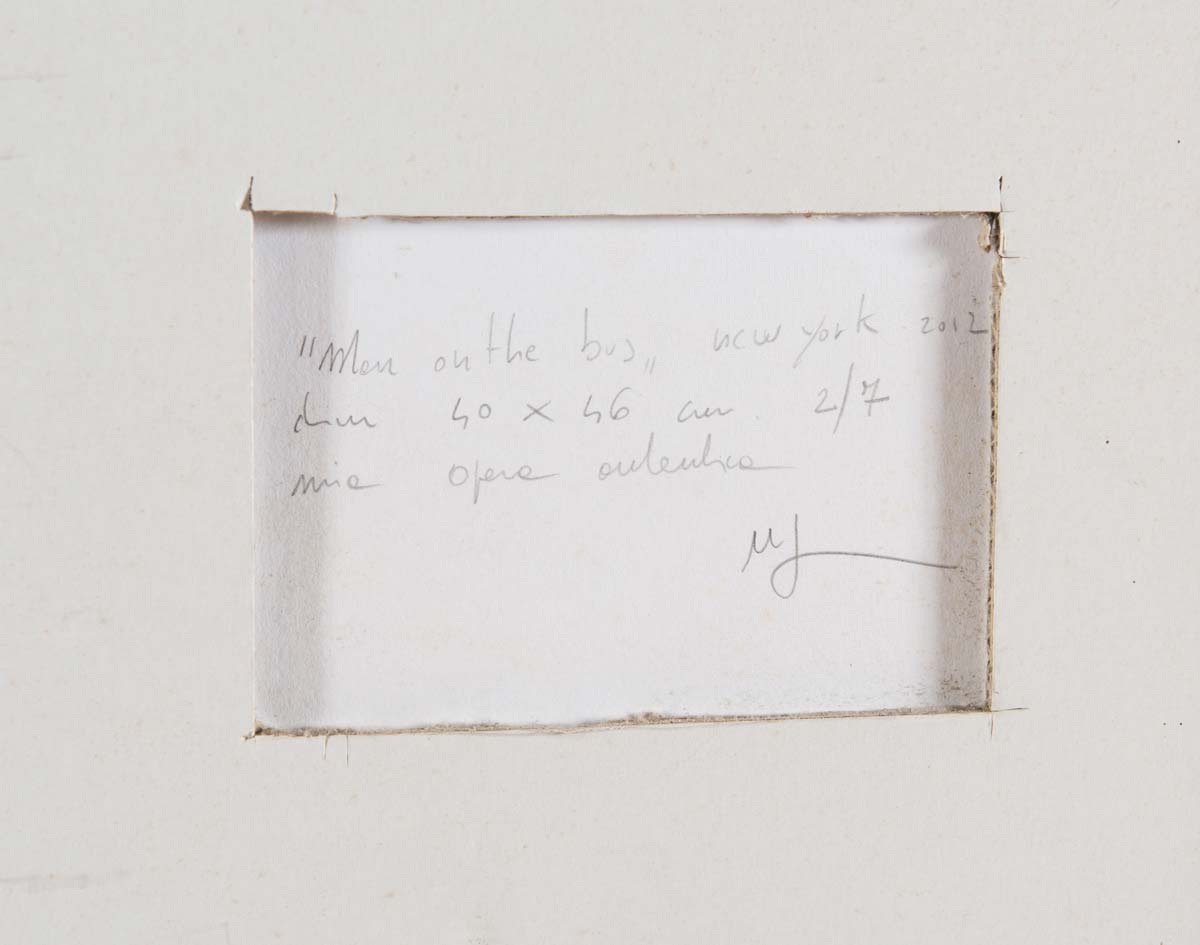 "Man on the bus„ new york 2012
dim 40 x 46 cm. 2/7
mia opera autentica